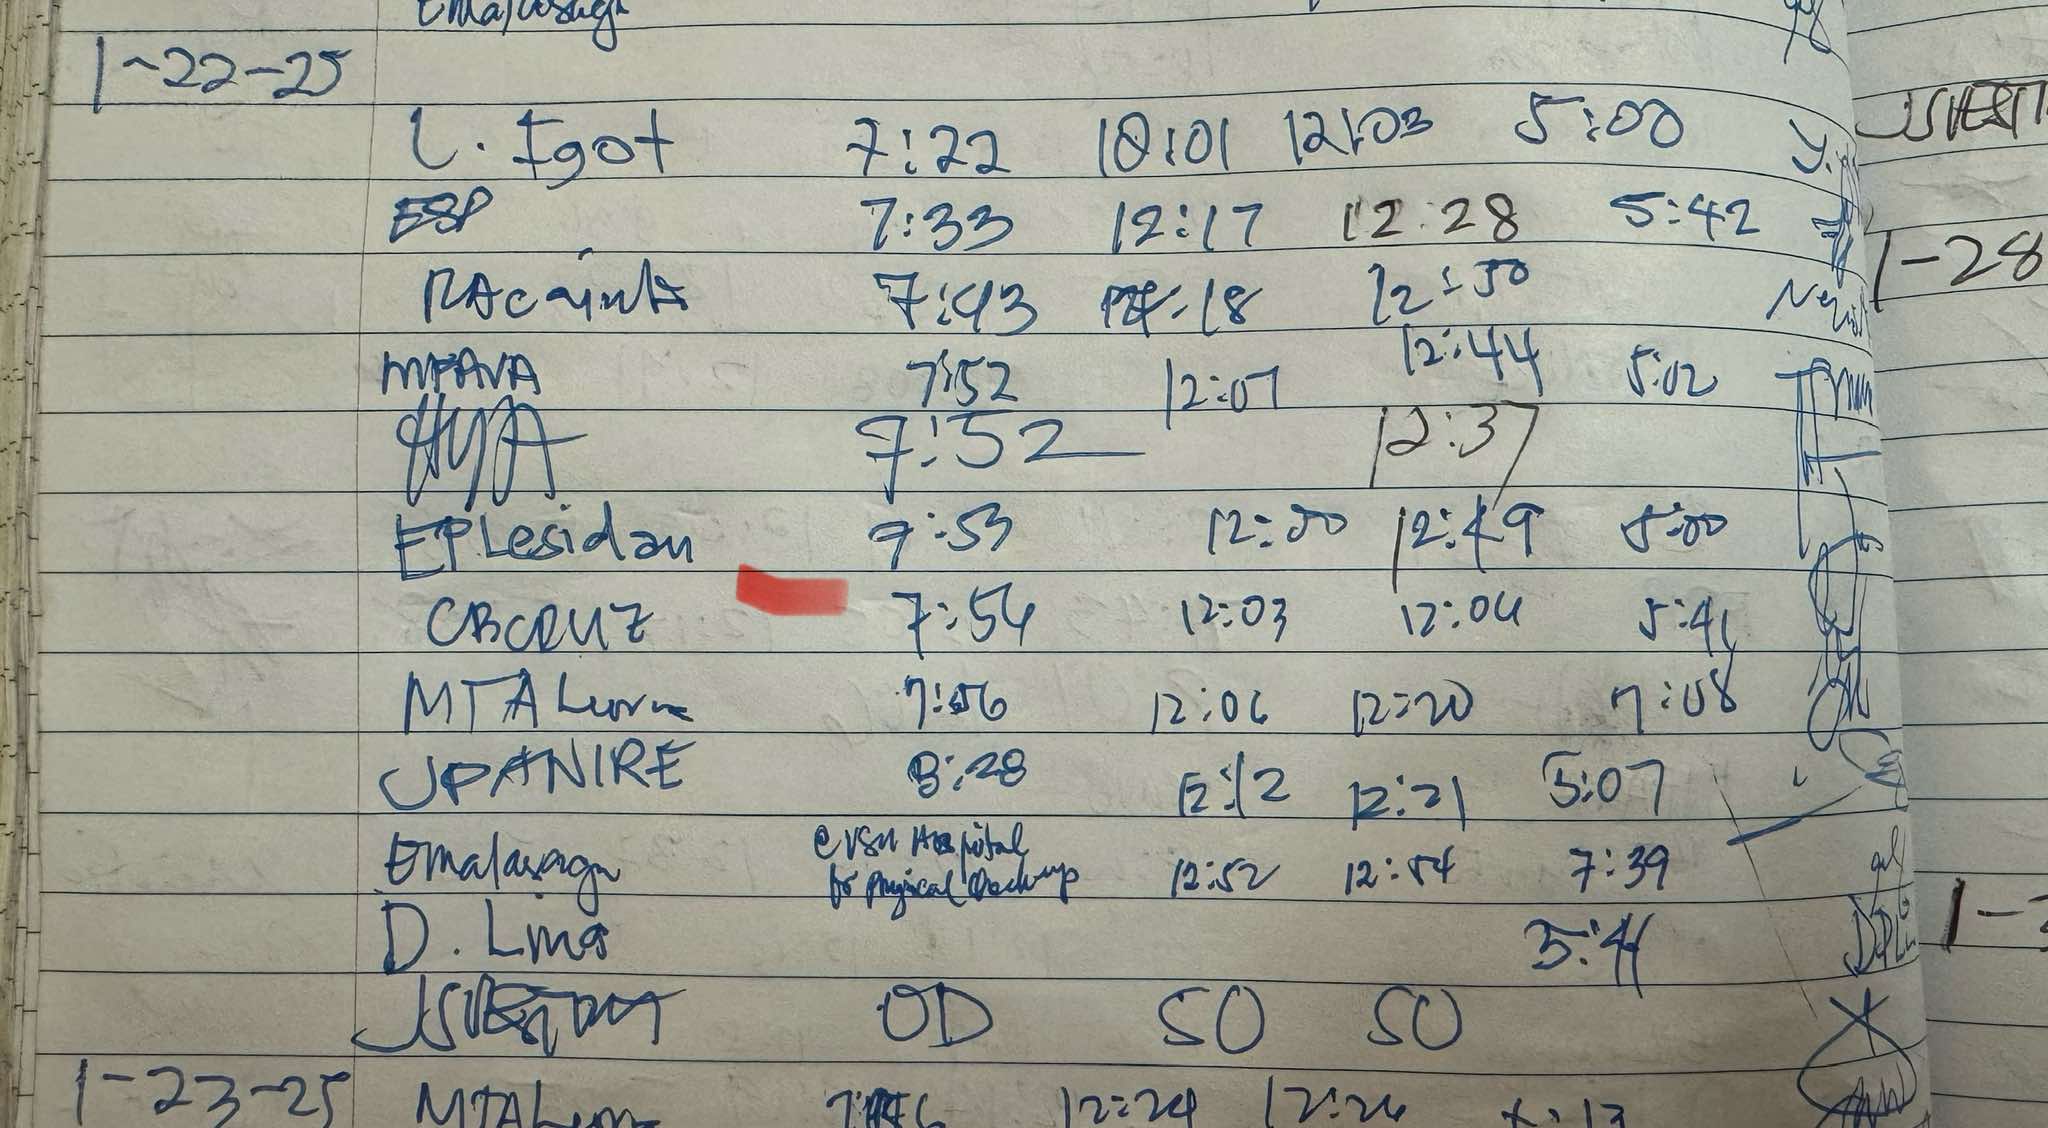 1-22-25
L. Igot 7:22 10:01 12:03 5:00
ESP 7:33 12:17 12:28 5:42
7:43 12:18 12:50
MFAVA 7:52 12:07 12:44 5:02
7:52 12:37
EPLesidan 7:53 12:00 12:49 5:00
CBCRUZ 7:54 12:03 12:04 5:41
MTA 7:56 12:06 12:20 7:08
JPANIRE 8:28 12:12 12:21 5:07
Emalasaga @ VSU Hospital 12:52 12:54 7:39
for Physical Checkup
D. Lina 5:41
OD SO SO
1-23-25 12:24 12:26
1-28